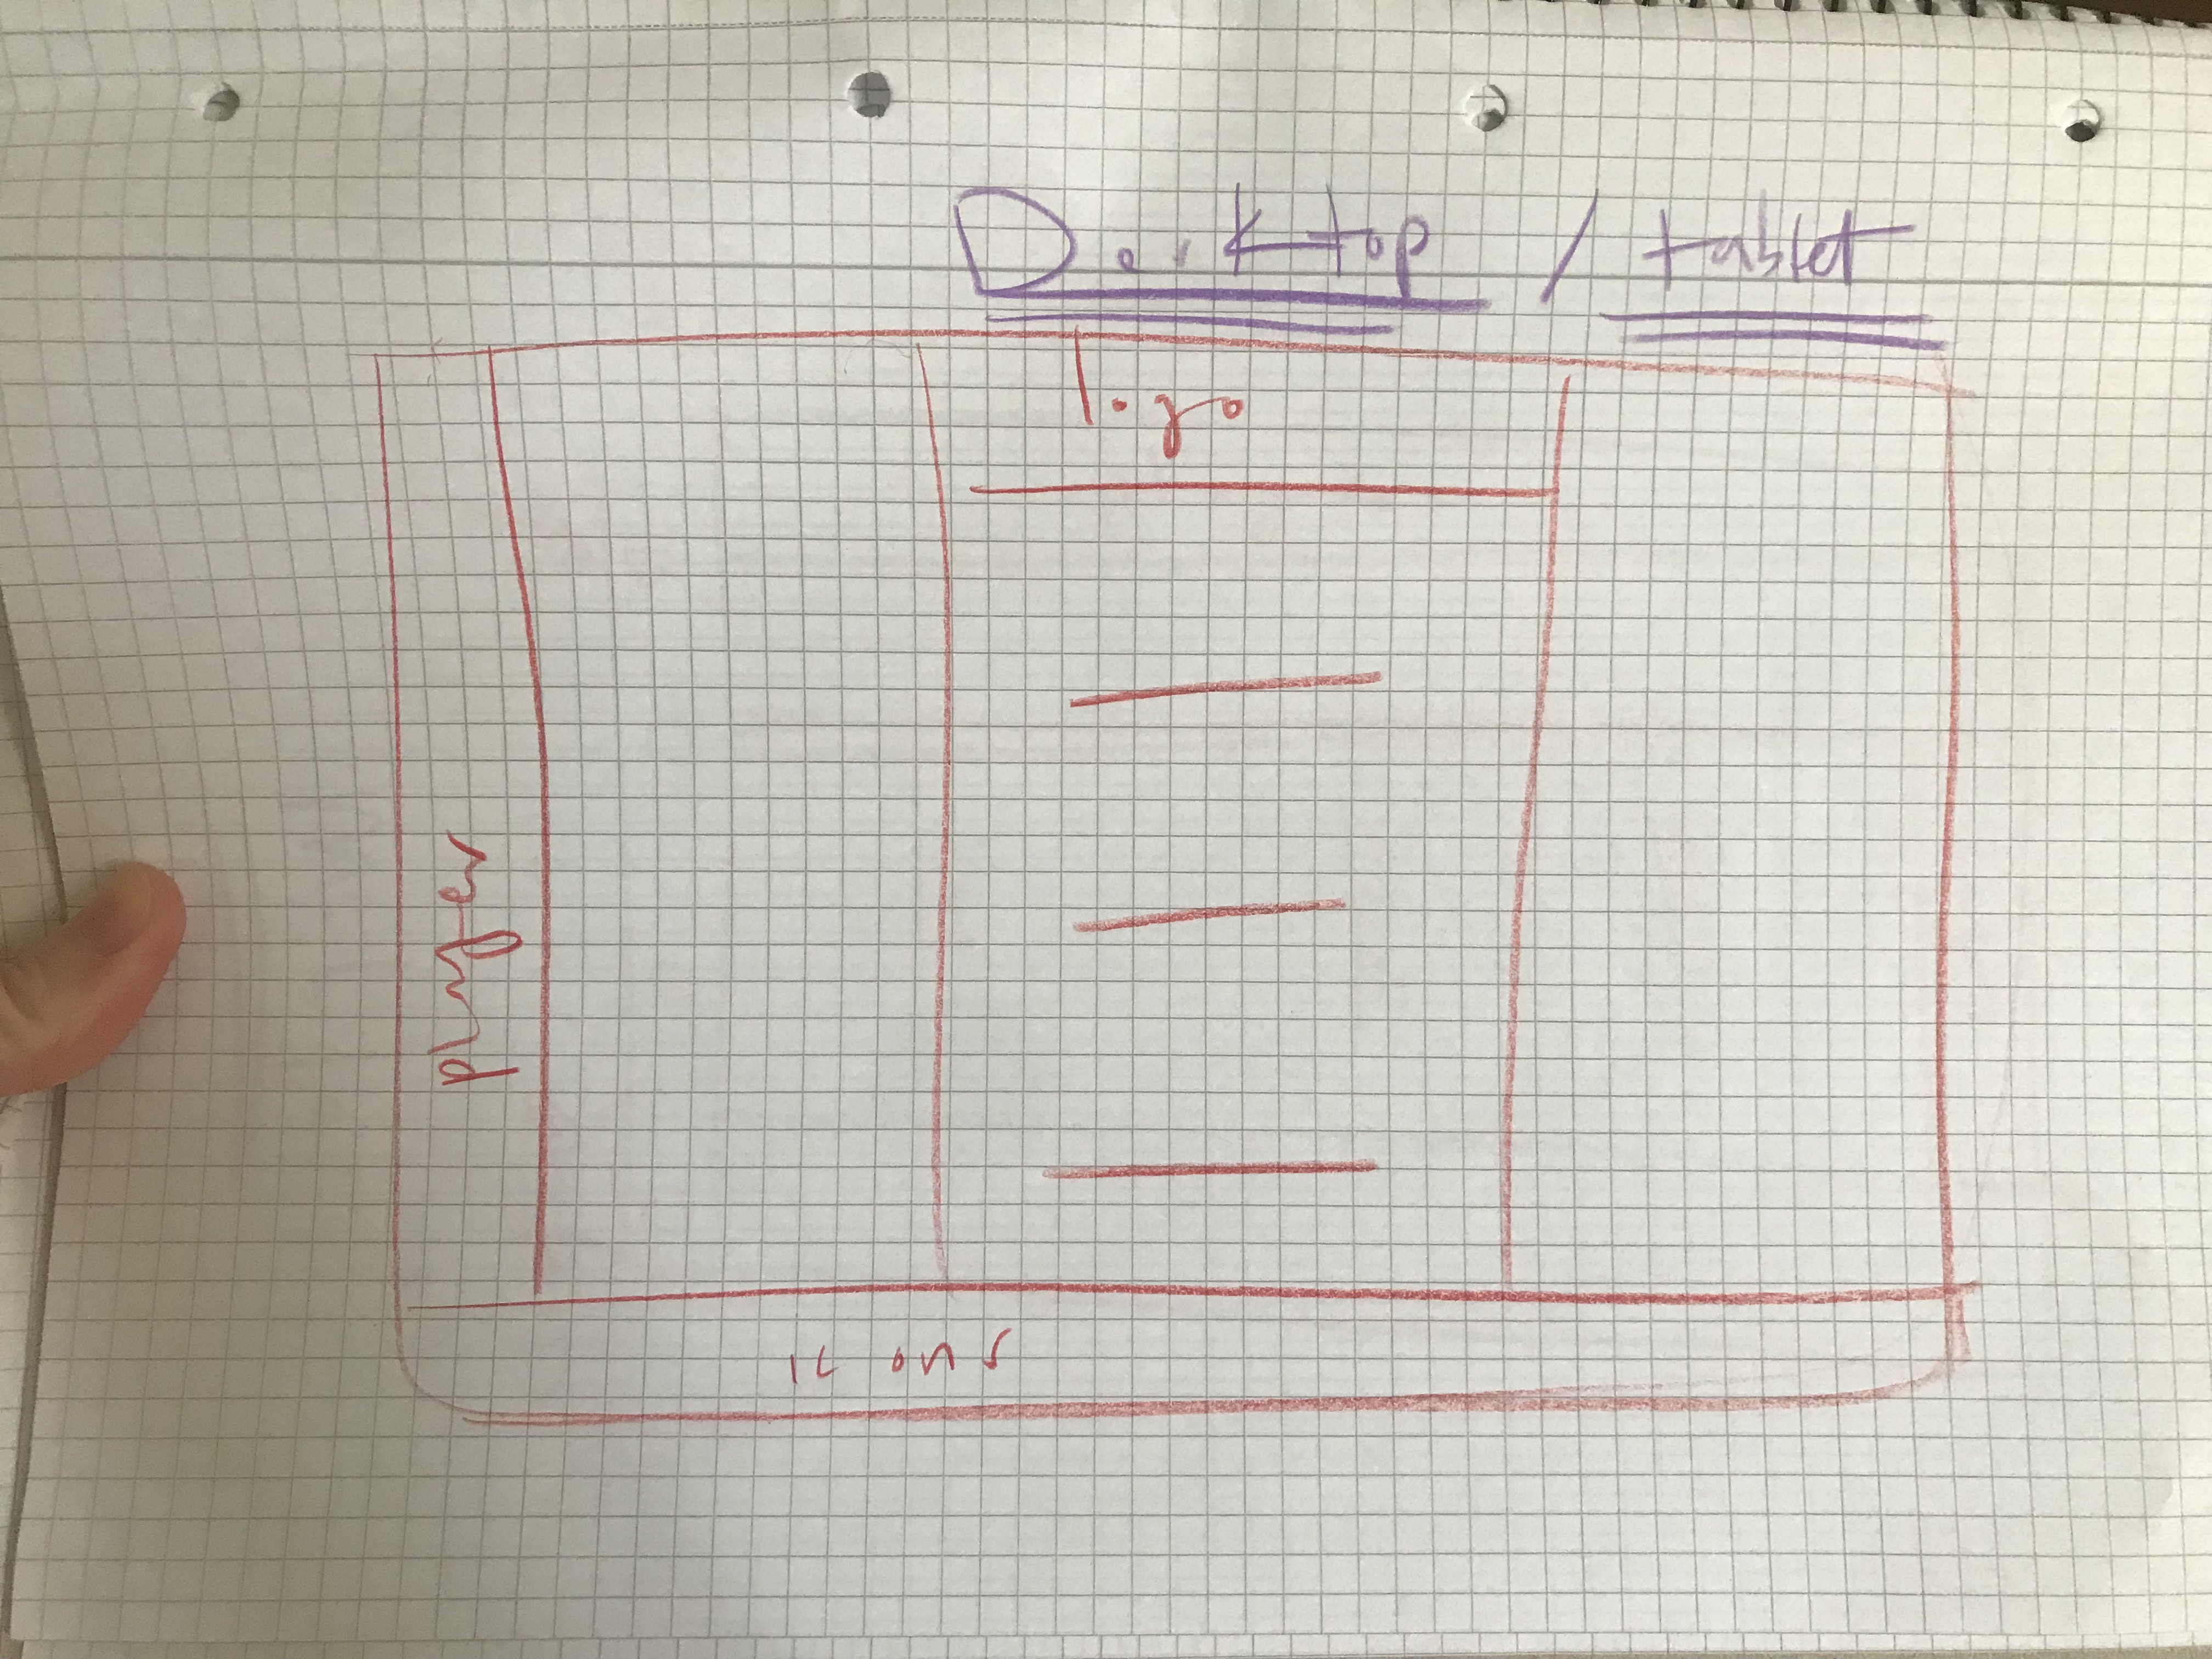 Desktop / tablet
logo
player
icons